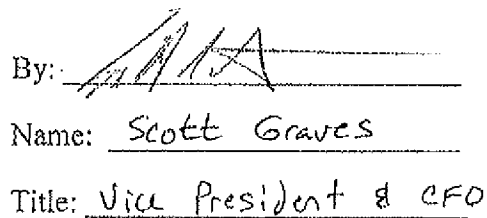 By:
Name: Scott Graves
Title: Vice President & CFO